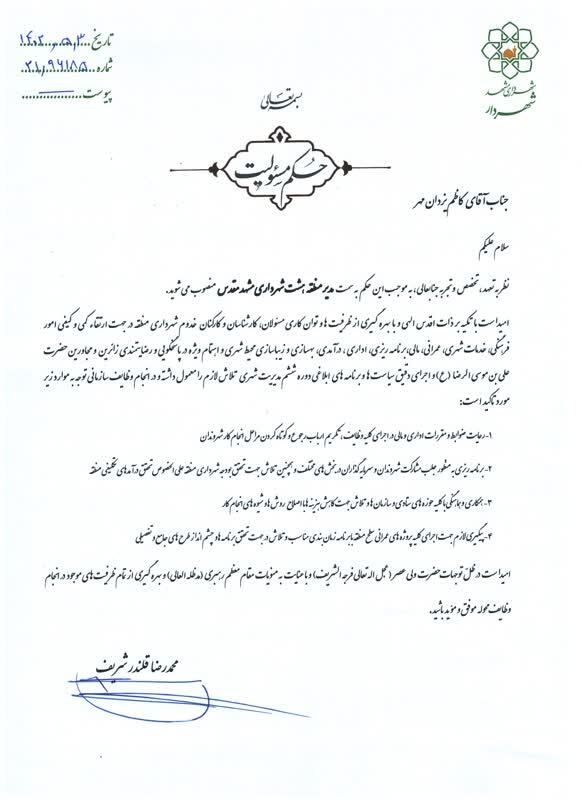 تاریخ ۱۴۰۲,۰۵,۰۳
شماره ۲۱,۹۶۱۸۵
پیوست
شهرداری مشهد
شهردار
بسمه تعالی
حکم مسئولیت
جناب آقای کاظم یزدان مهر
سلام علیکم
نظر به تعهد، تخصص و تجربه جنابعالی، به موجب این حکم به سمت مدیر منطقه هشت شهرداری مشهد مقدس منصوب می شوید.
امید است با تکیه بر ذات اقدس الهی و با بهره گیری از ظرفیت ها و توان کاری مسئولان، کارشناسان و کارکنان خدوم شهرداری منطقه در جهت ارتقاء کمی و کیفی امور
فرهنگی، خدمات شهری، عمرانی، مالی، برنامه ریزی، اداری، درآمدی، بهسازی و زیباسازی محیط شهری و اهتمام ویژه در پاسخگویی و رضایتمندی زائرین و مجاورین حضرت
علی بن موسی الرضا (ع) و اجرای دقیق سیاست ها و برنامه های ابلاغی دوره ششم مدیریت شهری تلاش لازم را معمول داشته و در انجام وظایف سازمانی توجه به موارد زیر
مورد تاکید است:
۱- رعایت ضوابط و مقررات اداری و مالی در اجرای کلیه وظایف، تکریم ارباب رجوع و کوتاه کردن مراحل انجام کار شهروندان
۲- برنامه ریزی به منظور جلب مشارکت شهروندان و سرمایه گذاران در بخش های مختلف و همچنین تلاش جهت تحقق بودجه شهرداری منطقه علی الخصوص تحقق درآمدهای تکلیفی منطقه
۳- همکاری و هماهنگی با کلیه حوزه های ستادی و سازمان ها و تلاش جهت کاهش هزینه ها و اصلاح روش ها و شیوه های انجام کار
۴- پیگیری لازم جهت اجرای کلیه پروژه های عمرانی سطح منطقه با برنامه زمان بندی مناسب و تلاش در جهت تحقق برنامه ها و چشم انداز طرح های جامع و تفصیلی
امید است در ظل توجهات حضرت ولی عصر (عجل اله تعالی فرجه الشریف) و با عنایت به منویات مقام معظم رهبری (مدظله العالی) و بهره گیری از تمام ظرفیت های موجود در انجام
وظایف محوله موفق و مؤید باشید.
محمدرضا قلندر شریف